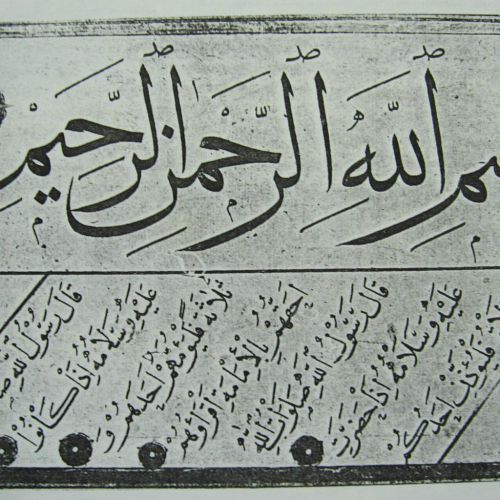 سم الله الرحمن الرحيم
قَالَ رَسُولُ اللهِ
عَلَيْهِ وَسَلَامُهُ إِذَا كَانُوا
ثَلَاثَةً فَلْيَؤُمَّهُمْ أَحَدُهُمْ وَ
أَحَقُّهُمْ بِالْإِمَامَةِ أَقْرَؤُهُمْ
قَالَ رَسُولُ اللهِ صَلَوَاتُ اللهِ
عَلَيْهِ وَسَلَامُهُ إِذَا حَضَرَتِ
فَلْيُؤَذِّنْ أَحَدُكُمْ